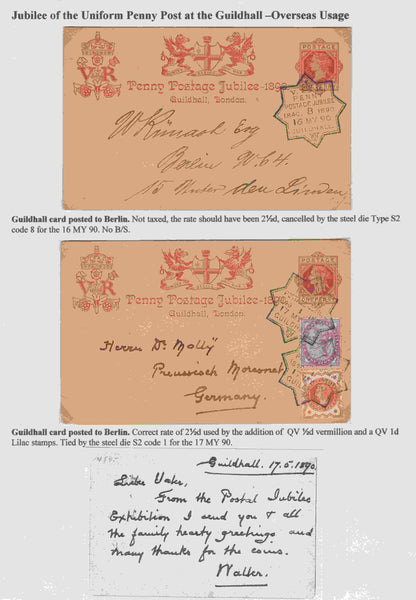 Jubilee of the Uniform Penny Post at the Guildhall –Overseas Usage
V R
POSTAGE
Penny Postage Jubilee-1890
Guildhall, London.
PENNY
POSTAGE JUBILEE
B 1890
16 MY 90
GUILDHALL
Esq
Berlin W. 64
15 Unter den Linden
Guildhall card posted to Berlin. Not taxed, the rate should have been 2½d, cancelled by the steel die Type S2
code 8 for the 16 MY 90. No B/S.
V R
POSTAGE
Penny Postage Jubilee-1890
Guildhall, London.
17 MY
Herrn Dr Molly
Preussisch Moresnet
Germany.
Guildhall card posted to Berlin. Correct rate of 2½d used by the addition of QV ½d vermillion and a QV 1d
Lilac stamps. Tied by the steel die S2 code 1 for the 17 MY 90.
Guildhall. 17.5.1890.
Lieber Vater,
From the Postal Jubilee
Exhibition I send you & all
the family hearty greetings and
many thanks for the coins.
Walter.